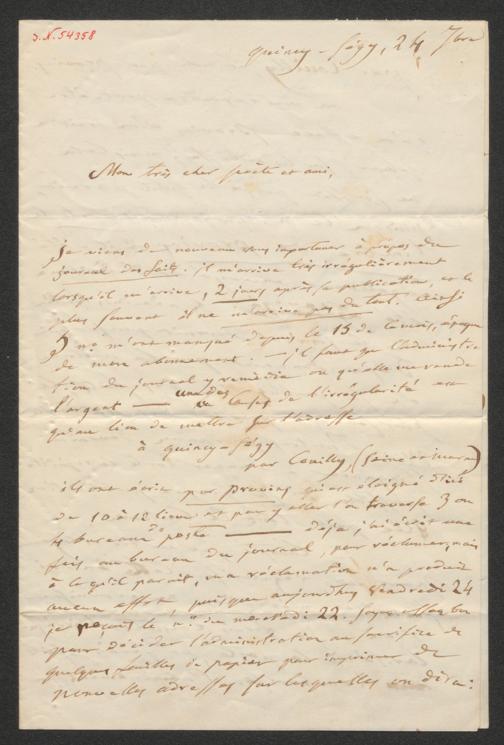 J. N. 54358
Quincy-Ségy, 24 7bre
Mon très cher poëte et ami,
Je viens de nouveau vous importuner à propos du
journal des faits. il m'arrive très irrégulièrement
lorsqu'il m'arrive, 2 jours après sa publication, et le
plus souvent il ne m'arrive pas du tout. Ainsi
3 nos m'ont manqué depuis le 15 de ce mois, époque
de mon abonnement. — il faut que l'administra-
tion du journal y remédie ou qu'elle me rende
l'argent — une des causes de l'irrégularité est
qu'au lieu de mettre sur l'adresse
à Quincy-Ségy
par Couilly, (Seine et marne)
ils ont écrit par Provins qui est éloigné d'ici
de 10 à 12 lieues et par y aller l'on traverse 3 ou
4 bureaux de poste — déja j'ai écrit une
fois au bureau du journal, pour réclamer, mais
à ce qu'il parait, ma réclamation n'a produit
aucun effet, puisque aujourdhui vendredi 24
je reçois le no. du mercredi 22. Soyez assez bon
pour décider l'administration au sacrifice de
quelques feuilles de papier pour imprimer de
nouvelles adresses sur lesquelles on dira: